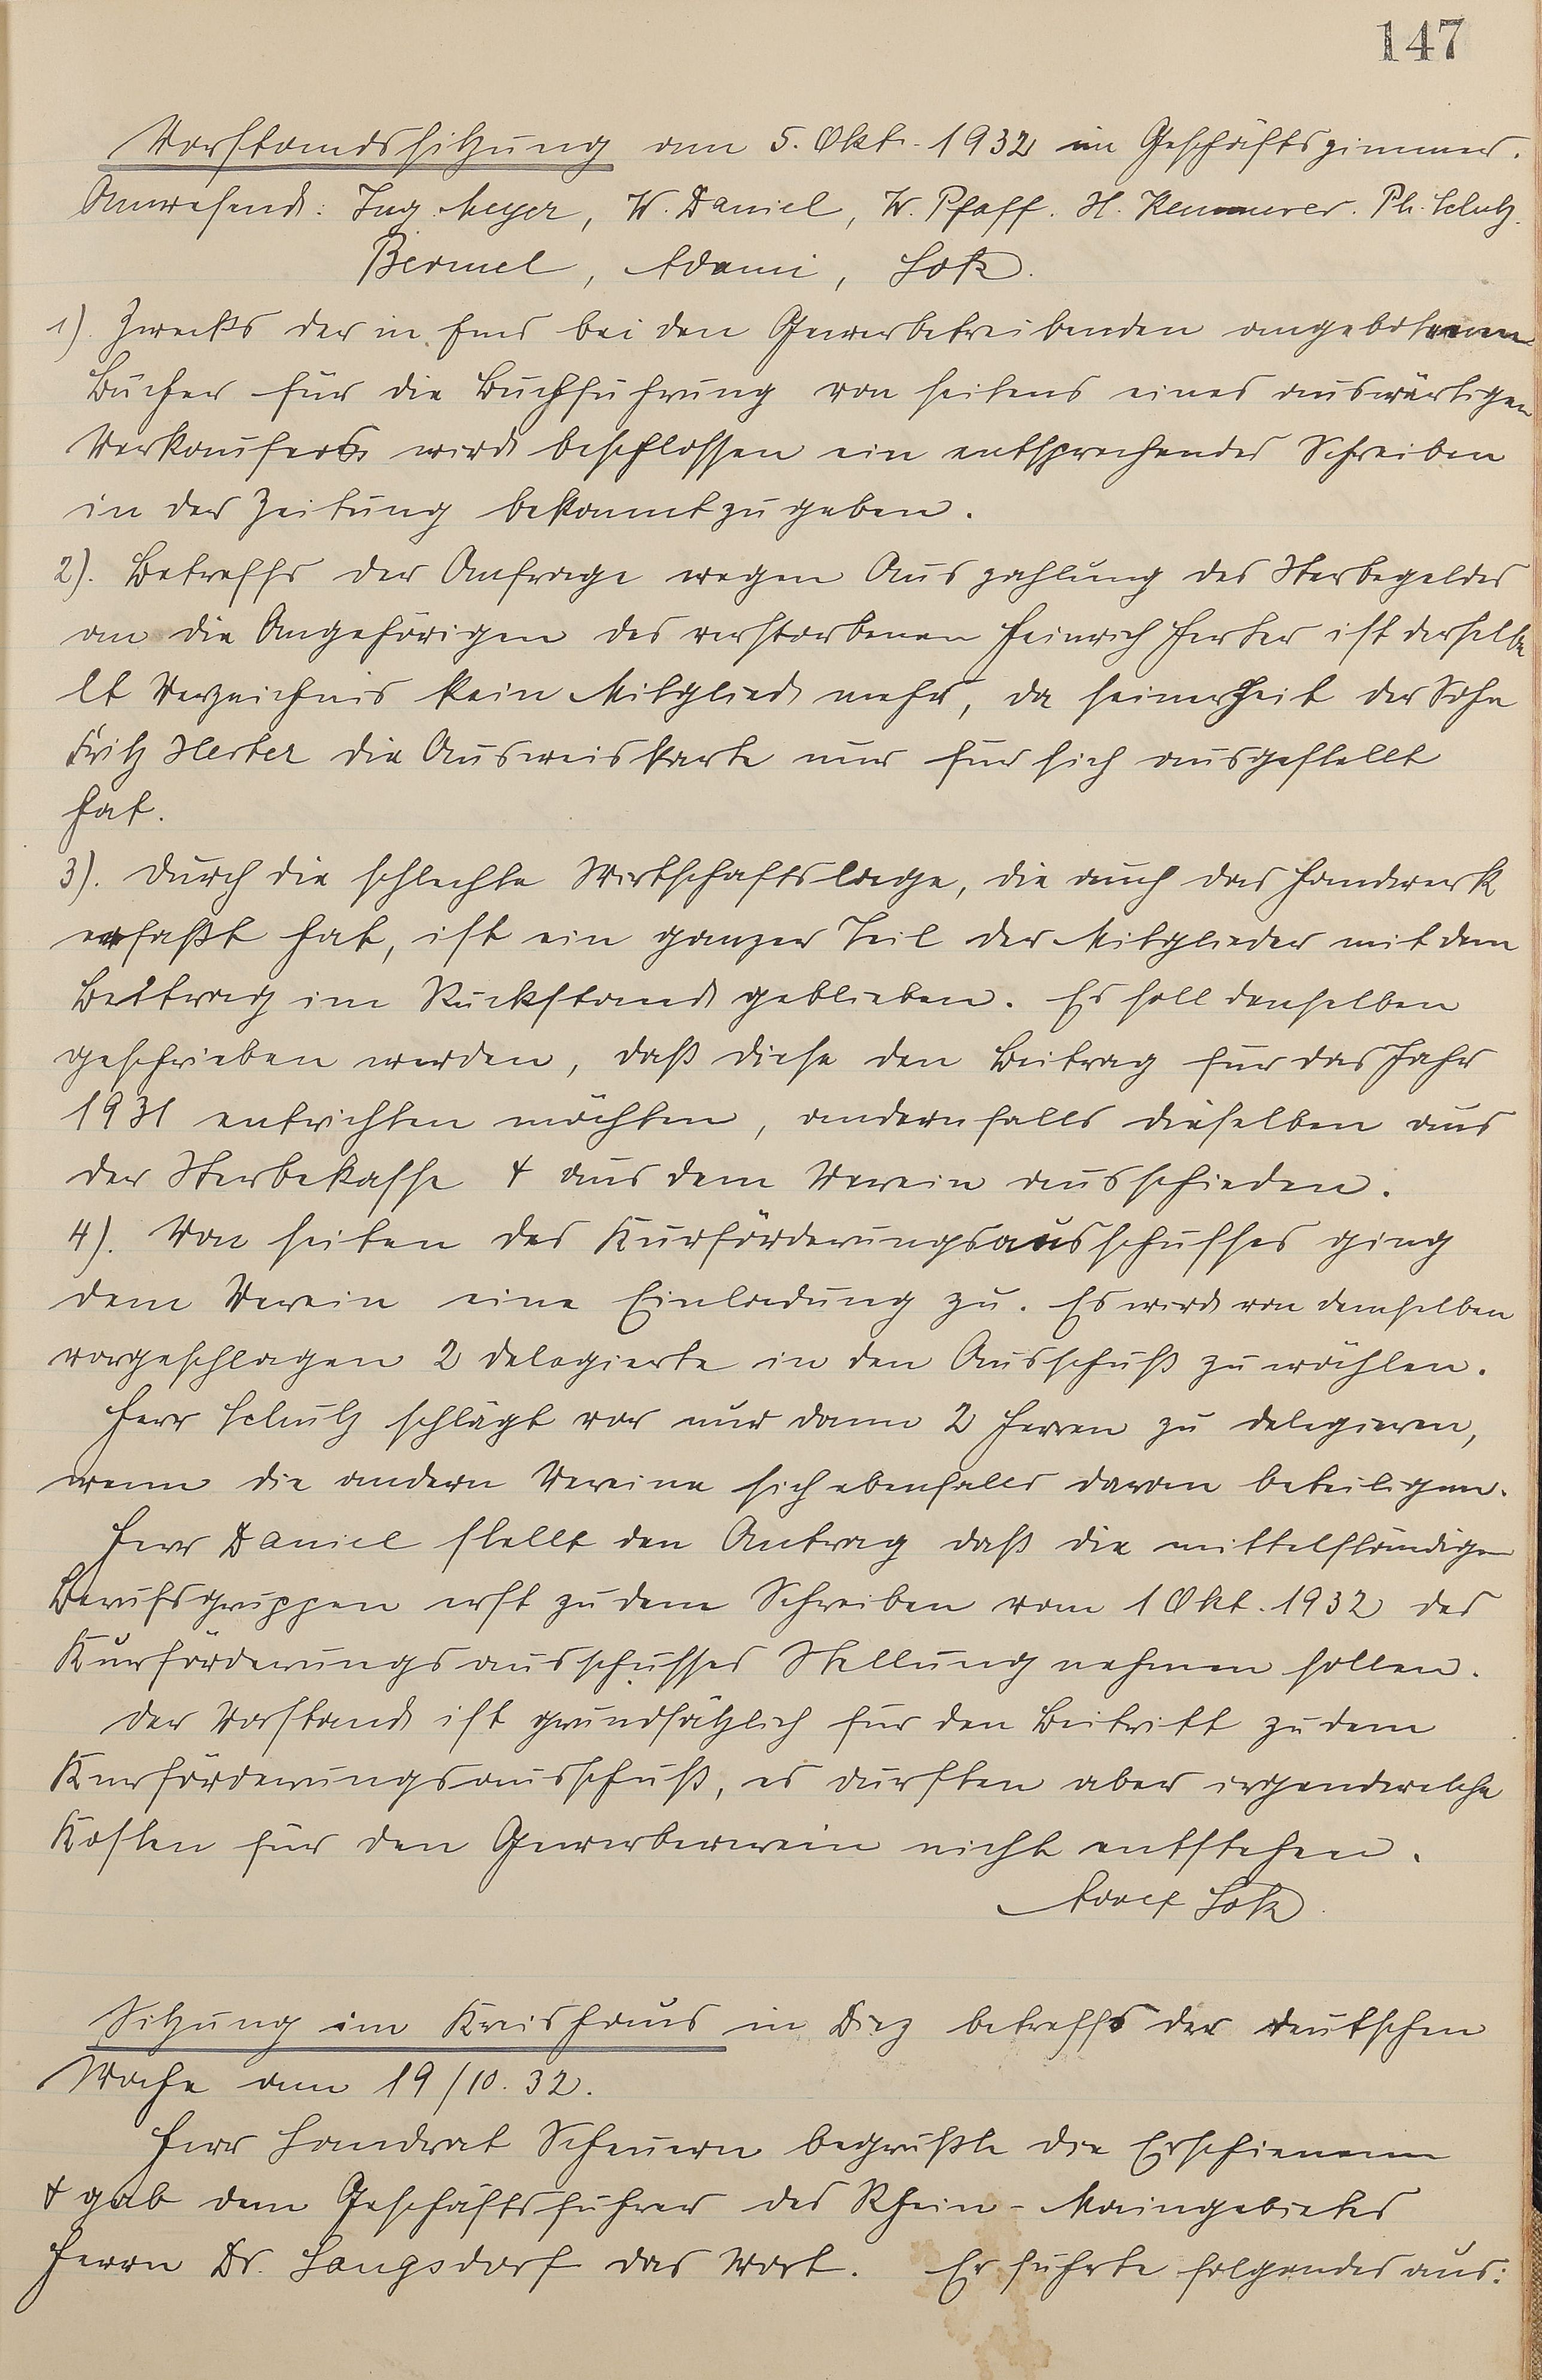 147
Vorstandssitzung am 5. Okt. 1932 im Geschäftszimmer.
Anwesend: Ing. Meyer, W. Daniel, W. Pfaff. H. Kemmerer. Ph. Schulz.
Bermel, Adami, Lotz.
1). Zwecks der in Ems bei den Gewerbetreibenden angebotenen
Bücher für die Buchführung von seitens eines auswärtigen
Verkaufers wird beschlossen ein entsprechendes Schreiben
in der Zeitung bekanntzugeben.
2). Betreffs der Anfrage wegen Auszahlung des Sterbegeldes
an die Angehörigen des verstorbenen Heinrich Herter ist derselbe
lt Verzeichnis kein Mitglied mehr, da seinerzeit der Sohn
Fritz Herter die Ausweiskarte nur für sich ausgestellt
hat.
3). Durch die schlechte Wirtschaftslage, die auch das Handwerk
erfaßt hat, ist ein ganzer Teil der Mitglieder mit dem
Beitrag im Rückstand geblieben. Es soll denselben
geschrieben werden, daß diese den Beitrag für das Jahr
1931 entrichten möchten, andernfalls dieselben aus
der Sterbekasse & aus dem Verein ausschieden.
4). Von seiten des Kurförderungsausschusses ging
dem Verein eine Einladung zu. Es wird von demselben
vorgeschlagen 2 Delegierte in den Ausschuß zu wählen.
Herr Schulz schlägt vor nur dann 2 Herren zu delegieren,
wenn die andern Vereine sich ebenfalls daran beteiligen.
Herr Daniel stellt den Antrag daß die mittelständigen
Berufsgruppen erst zu dem Schreiben vom 1 Okt. 1932 des
Kurförderungsausschusses Stellung nehmen sollen.
Der Vorstand ist grundsätzlich für den Beitritt zu dem
Kurförderungsausschuß, es dürften aber irgendwelche
Kosten für den Gewerbeverein nicht entstehen.
Adolf Lotz.
Sitzung im Kreishaus in Diez betreffs der deutschen
Woche am 19/10. 32.
Herr Landrat Scheuern begrüßte die Erschienenen
& gab dem Geschäftsführer des Rhein-Maingebietes
Herrn Dr. Langsdorf das Wort. Er führte folgendes aus: